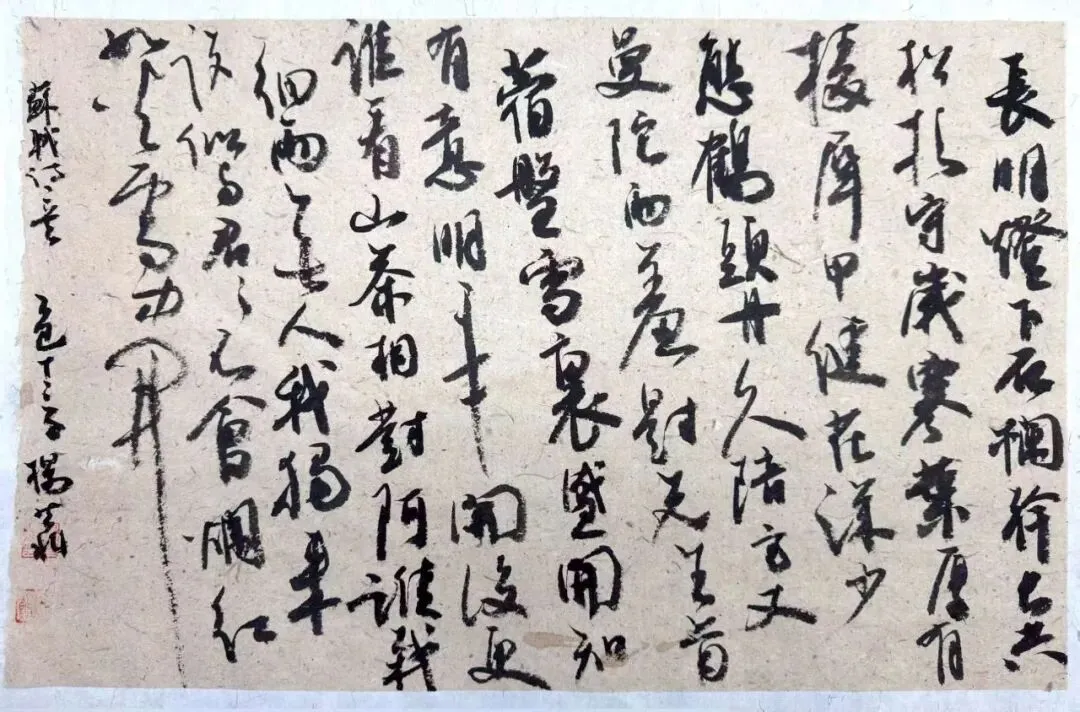 長明燈下石欄幹長共
松杉守歲寒葉厚有
棱犀甲健花深少
態鶴頭丹久陪方丈
曼陀雨羞對先生苜
蓿盤雪裏盛開知
有意明年開後更
誰看山茶相對阿誰栽
細雨無人我獨來
説似與君々不會爛紅
如火雪中開
蘇軾詩二首 十二 楊